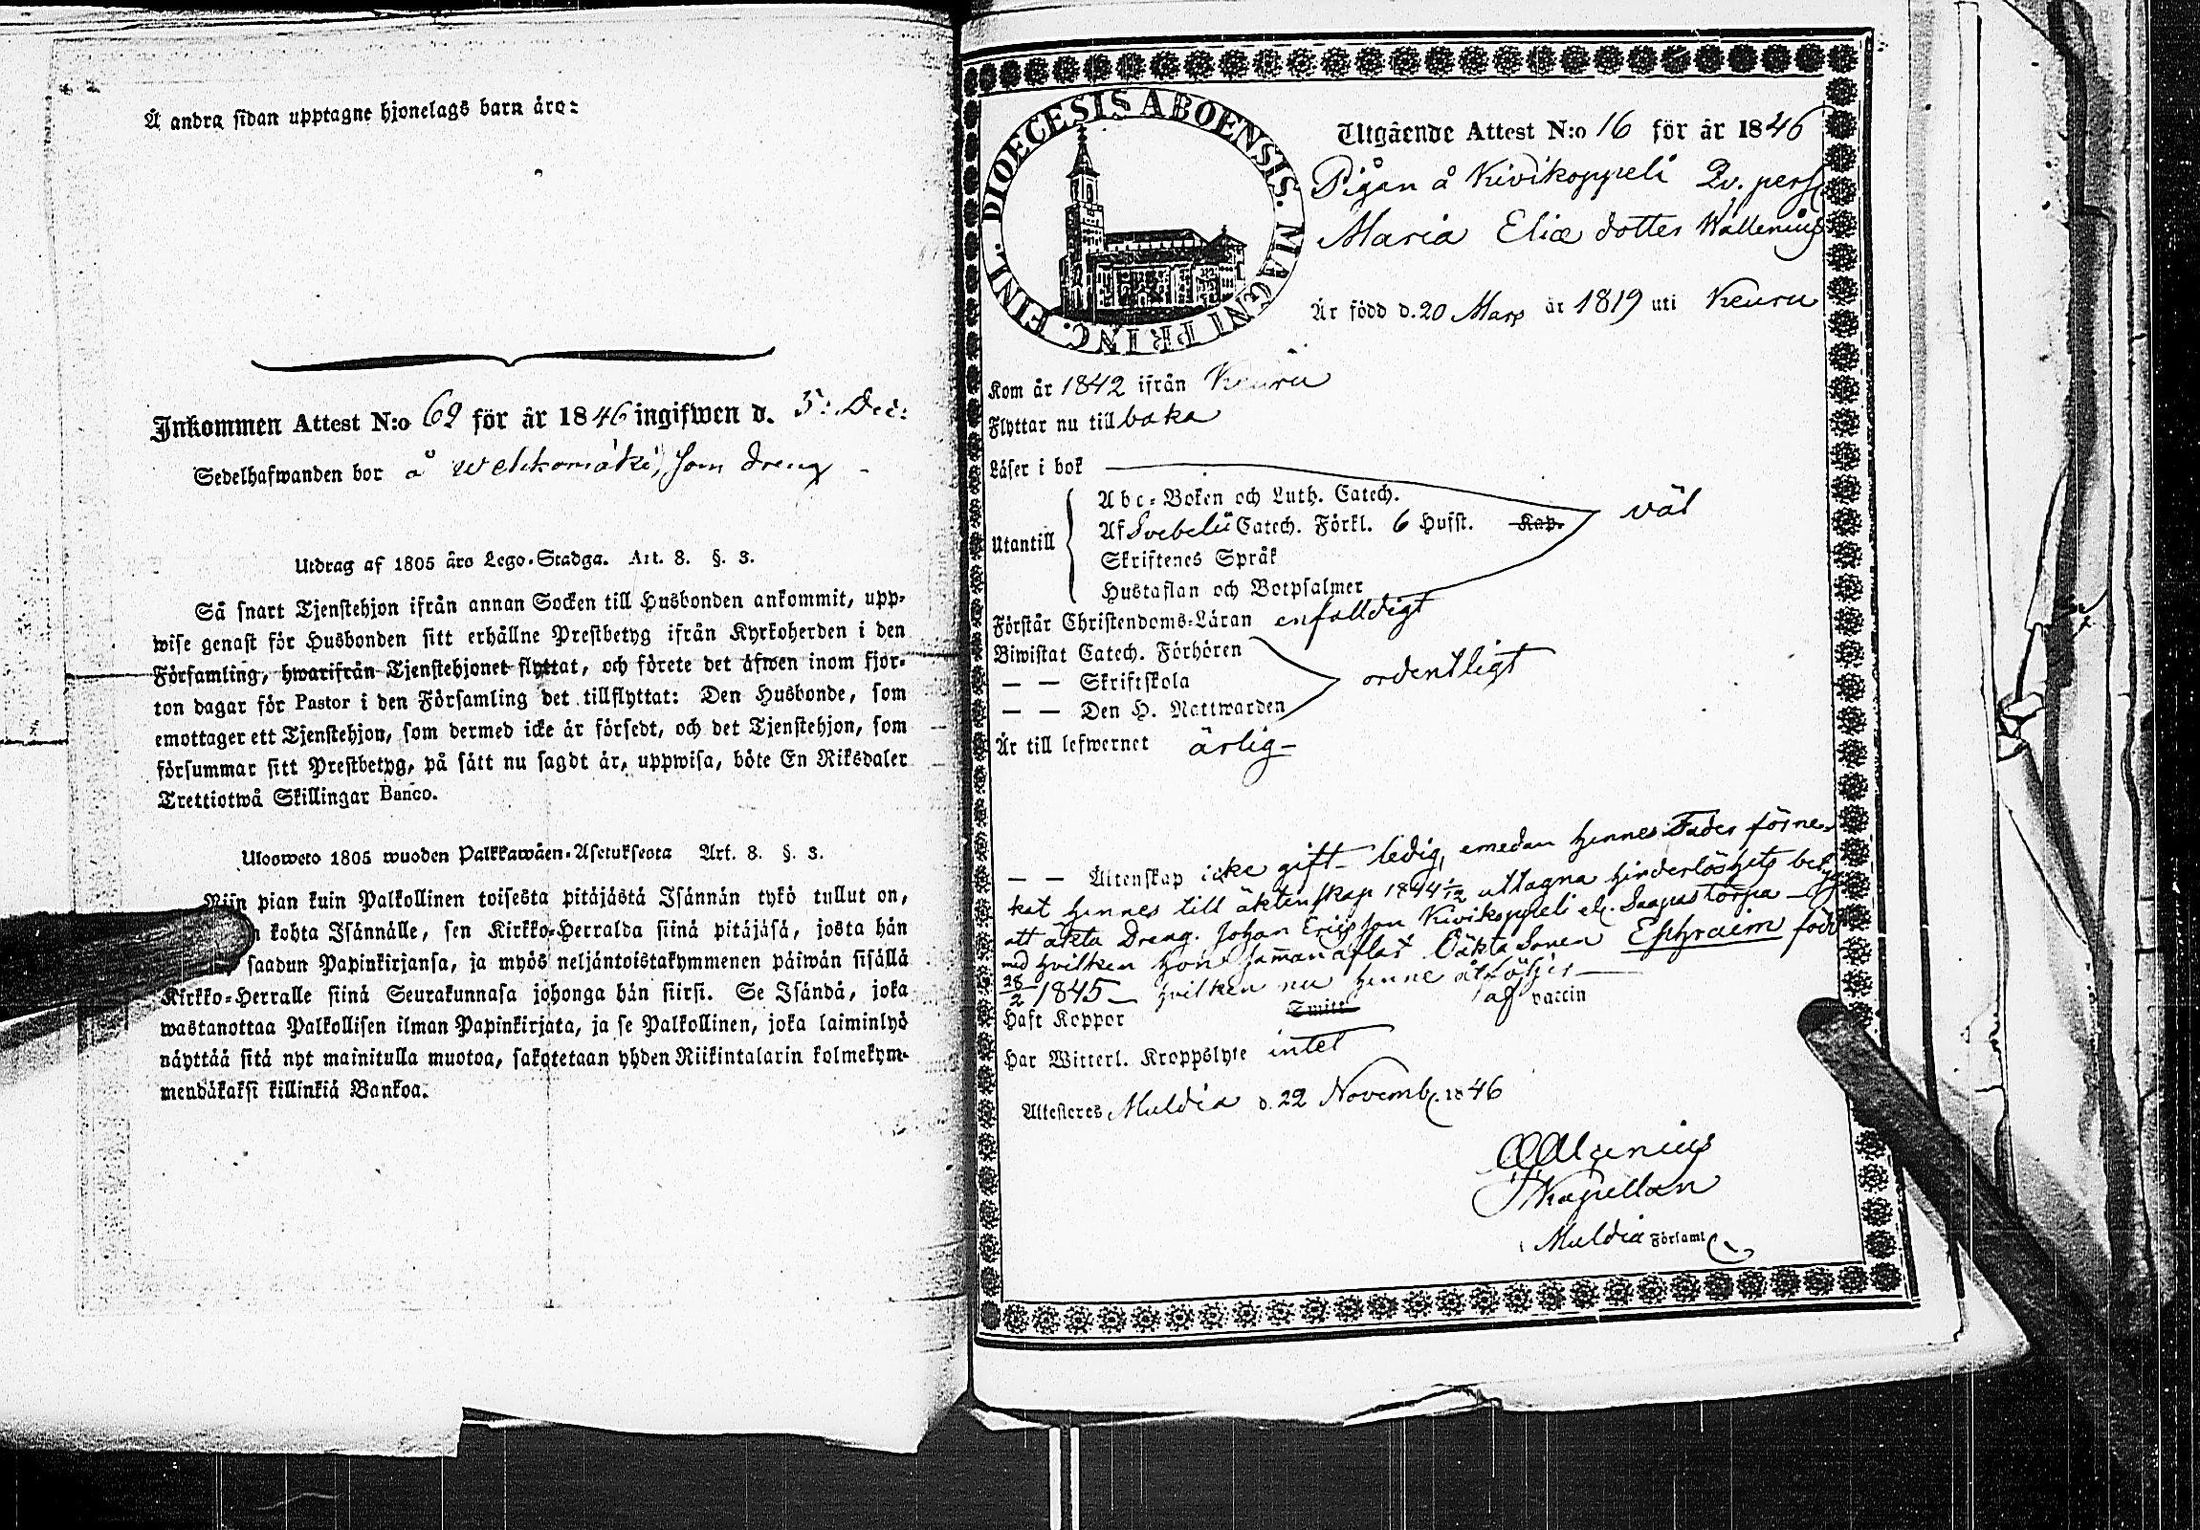 Å andra sidan upptagne hjonelags barn äro:
Inkommen Attest N:o 69 för år 1846 ingifwen d. 5: Dec:
Sedelhafwanden bor å Wehkomäki, som dreng
Utdrag af 1805 års Lego-Stadga. Art. 8. §. 3.
Så snart Tjenstehjon ifrån annan Socken till Husbonden ankommit, upp-
wise genast för Husbonden sitt erhållne Prestbetyg ifrån Kyrkoherden i den
Församling, hwarifrån Tjenstehjonet flyttat, och förete det äfwen inom fjor-
ton dagar för Pastor i den Församling det tillflyttat: Den Husbonde, som
emottager ett Tjenstehjon, som dermed icke är försedt, och det Tjenstehjon, som
försummar sitt Prestbetyg, på sätt nu sagdt är, uppwisa, böte En Riksdaler
Trettiotwå Skillingar Banco.
Ulosweto 1805 wuoden Palkkawäen-Asetuksesta Art. 8. §. 3.
Niin pian kuin Palkollinen toisesta pitäjästä Isännän tykö tullut on,
kohta Isännälle, sen Kirkko-Herralda siinä pitäjäsä, josta hän
saadun Papinkirjansa, ja myös neljäntoistakymmenen päiwän sisällä
Kirkko-Herralle siinä Seurakunnasa johonga hän siirsi. Se Isändä, joka
wastanottaa Palkollisen ilman Papinkirjata, ja se Palkollinen, joka laiminlyö
näyttää sitä nyt mainitulla muotoa, sakotetaan yhden Riikintalarin kolmekym-
mendäkaksi killinkiä Bankoa.
DIOECESIS ABOENSIS. MAGNI PRINC. FINL.
Utgående Attest N:o 16 för år 1846
Pigan å Kivikoppeli Qv. pers
Maria Eliæ dotter Wallenius
Är född d. 20 Mars år 1819 uti Keuru
Kom år 1842 ifrån Keuru
Flyttar nu tillbaka
Läser i bok
Abc-Boken och Luth. Catech.
Utantill Af Svebelii Catech. Förkl. 6 Hufst. Kap. väl
Skriftenes Språk
Hustaflan och Botpsalmer
Förstår Christendoms-Läran enfaldigt
Biwistat Catech. Förhören
— — Skriftskola ordentligt
— — Den H. Nattwarden
Är till lefwernet ärlig
— — Äktenskap icke gift - ledig, emedan hennes Fader förne-
kat hennes till äktenskap 1844 1/12 uttagna hinderlöshets bet
att äkta Dreng. Johan Ericsson Kivikoppeli
med hvilken hon samman aflat Oäkta Sonen Ephraim född
28/2 1845 — hvilken nu henne åtföljer
Haft Koppor Smitt af vaccin
Har Witterl. Kroppslyte intet
Attesteres Muldia d. 22 Novemb. 1846
Kapellan
Muldia Församl